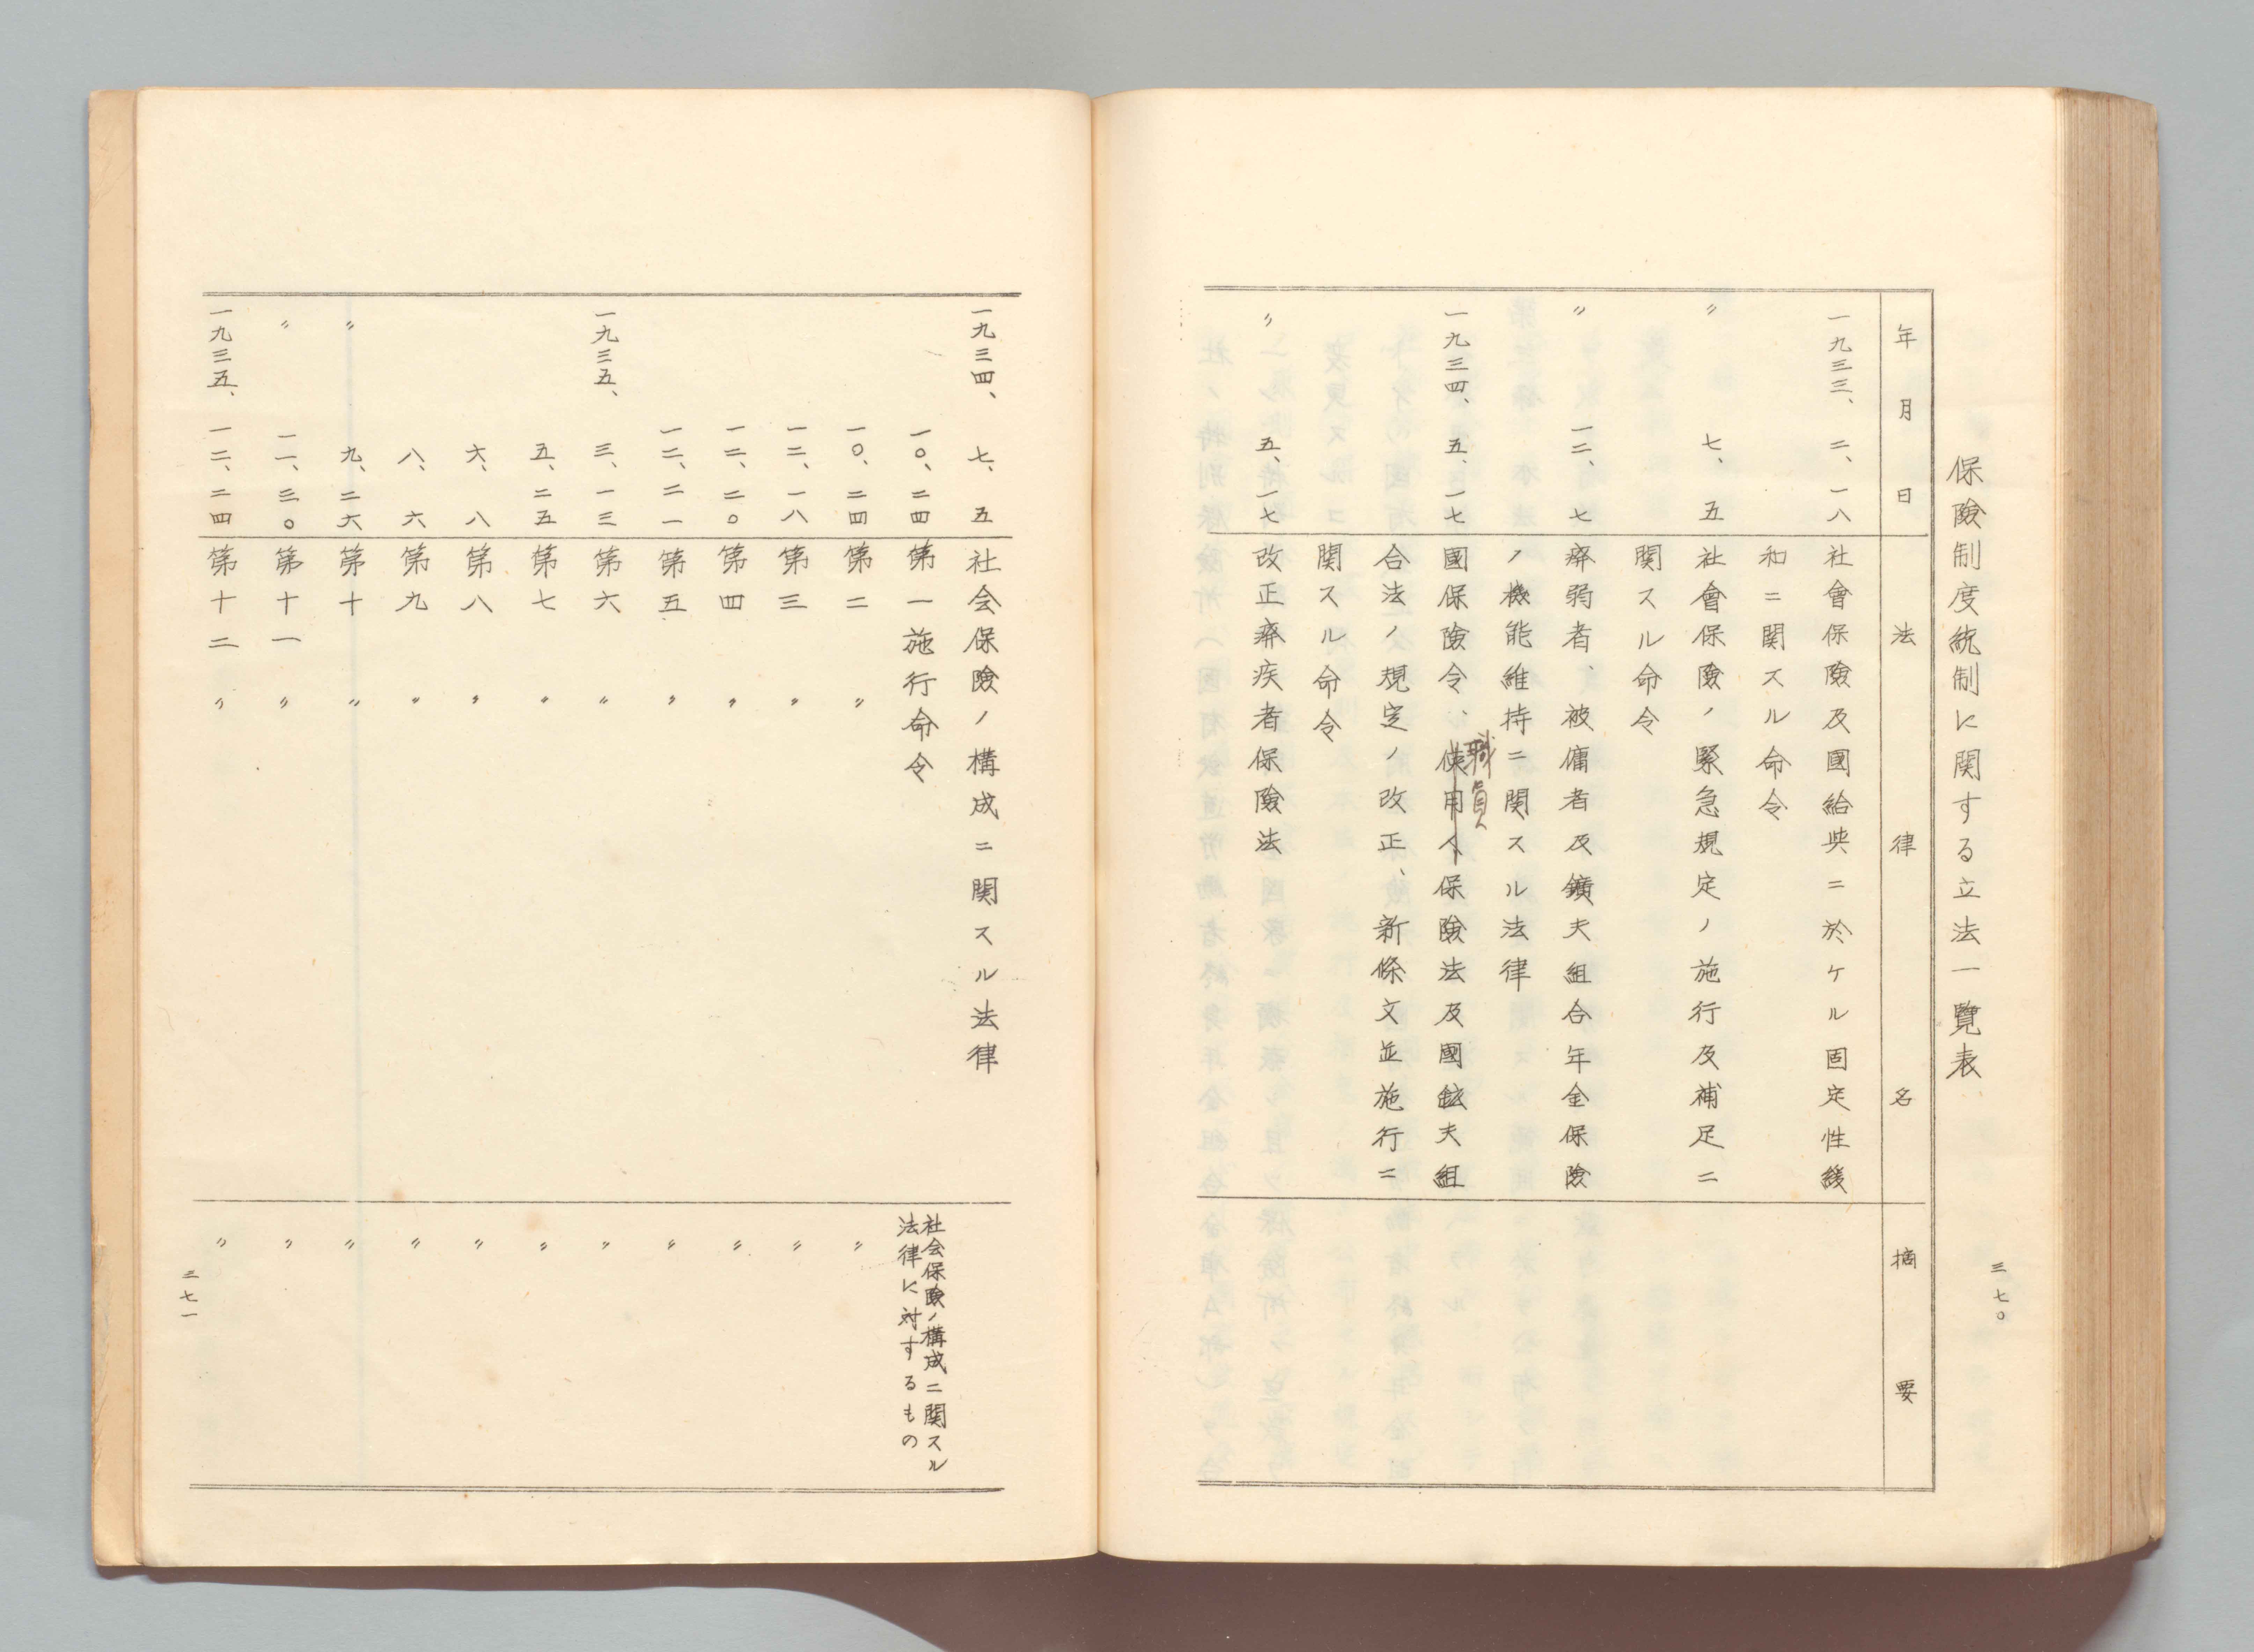 保險制度統制に関する立法一覽表
三七〇
年月日
法律名
摘要
一九三三、二、一八
社會保險及國給與ニ於ケル固定性緩
和ニ関スル命令
〃 七、五
社會保險ノ緊急規定ノ施行及補足ニ
関スル命令
〃 一二、七
癈弱者、被傭者及鑛夫組合年金保險
ノ機能維持ニ関スル法律
一九三四、五、一七
國保險令、使用人保險法及國鉱夫組
職員
合法ノ規定ノ改正、新條文並施行ニ
関スル命令
〃 五、一七
改正癈疾者保險法
一九三四、七、五
社会保險ノ構成ニ関スル法律
一〇、二四
第一施行命令
社会保險ノ構成ニ関スル
法律に対するもの
一〇、二四
第二 〃
〃
一二、一八
第三 〃
〃
一二、二〇
第四 〃
〃
一二、二一
第五 〃
〃
一九三五、三、一三
第六 〃
〃
五、二五
第七 〃
〃
六、八
第八 〃
〃
八、六
第九 〃
〃
〃 九、二六
第十 〃
〃
〃 一一、三〇
第十一 〃
〃
一九三五、一二、二四
第十二 〃
〃
三七一